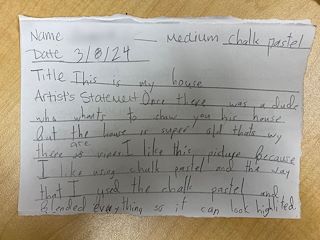 Name Medium chalk pastel
Date 3/8/24
Title This is my house
Artist's Statement Once there was a dude
who wants to show you his house
but the house is super old thats wy
there is are vines I like this picture because
I like using chalk pastel and the way
that I used the chalk pastel and
blended everything so it can look highlited